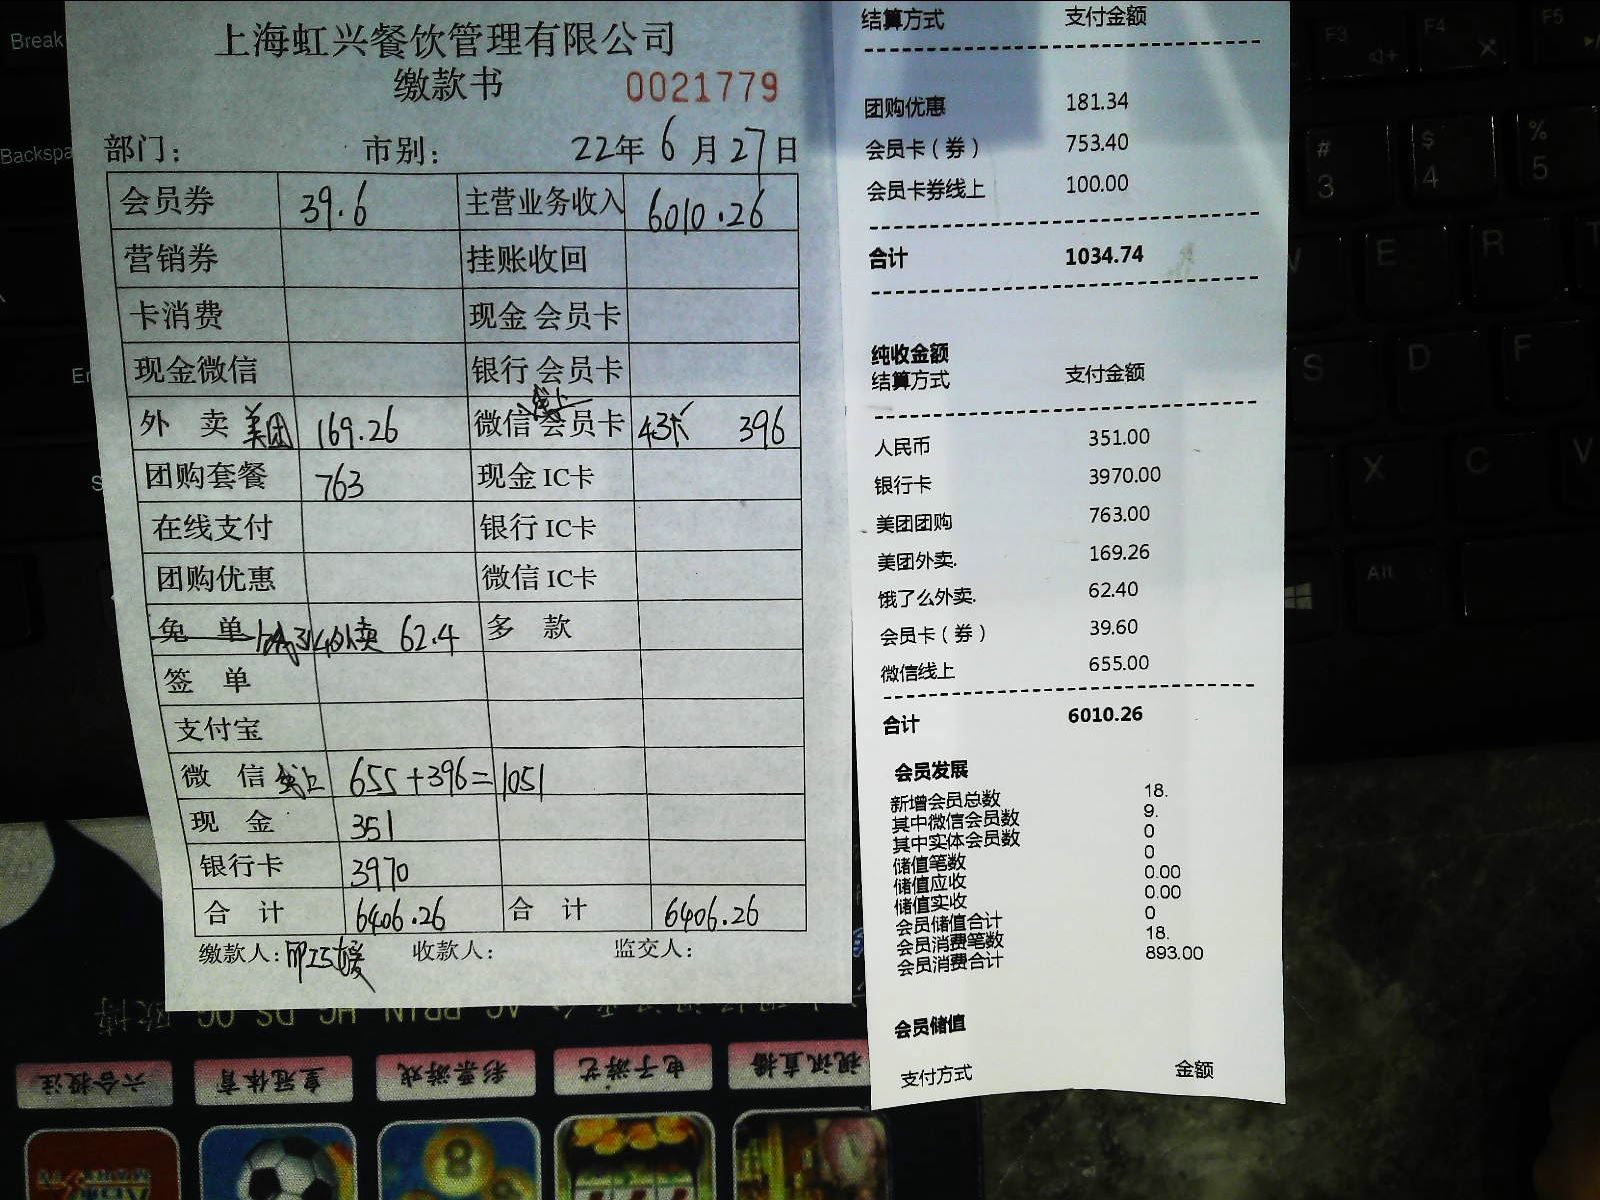 上海虹兴餐饮管理有限公司
缴款书 0021779
部门： 市别： 22年6月27日
会员券 39.6 主营业务收入 6010.26
营销券 挂账收回
卡消费 现金 会员卡
现金微信 银行 会员卡
外 卖 美团 169.26 微信 线上 会员卡 43张 396
团购套餐 763 现金 IC卡
在线支付 银行 IC卡
团购优惠 微信 IC卡
免 单 外卖 62.4 多 款
签 单
支付宝
微 信 线上 655+396=1051
现 金 351
银行卡 3970
合 计 6406.26 合 计 6406.26
缴款人： 收款人： 监交人：
结算方式 支付金额
团购优惠 181.34
会员卡（券） 753.40
会员卡券线上 100.00
合计 1034.74
纯收金额
结算方式 支付金额
人民币 351.00
银行卡 3970.00
美团团购 763.00
美团外卖. 169.26
饿了么外卖. 62.40
会员卡（券） 39.60
微信线上 655.00
合计 6010.26
会员发展
新增会员总数 18.
其中微信会员数 9.
其中实体会员数 0
储值笔数 0
储值应收 0.00
储值实收 0.00
会员储值合计 0
会员消费笔数 18.
会员消费合计 893.00
会员储值
支付方式 金额
Break
Backspa
F3
F4
F5
#
3
$
4
%
5
E
R
S
D
F
X
C
V
Alt
六合投注
皇冠体育
彩票游戏
电子游艺
视讯直播